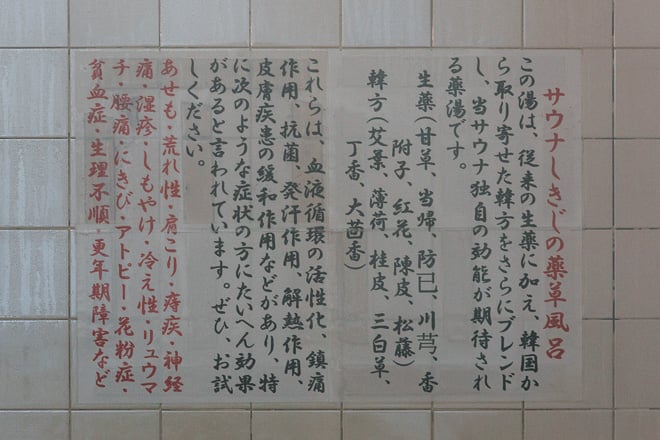 サウナしきじの薬草風呂
この湯は、従来の生薬に加え、韓国か
ら取り寄せた韓方をさらにブレンド
し、当サウナ独自の効能が期待され
る薬湯です。
生薬(甘草、当帰、防已、川芎、香
附子、紅花、陳皮、松藤)
韓方(艾葉、薄荷、桂皮、三白草、
丁香、大茴香)
これらは、血液循環の活性化、鎮痛
作用、抗菌、発汗作用、解熱作用、
皮膚疾患の緩和作用などがあり、特
に次のような症状の方にたいへん効果
があると言われています。ぜひ、お試
しください。
あせも・荒れ性・肩こり・痔疾・神経
痛・湿疹・しもやけ・冷え性・リュウマ
チ・腰痛・にきび・アトピー・花粉症・
貧血症・生理不順・更年期障害など